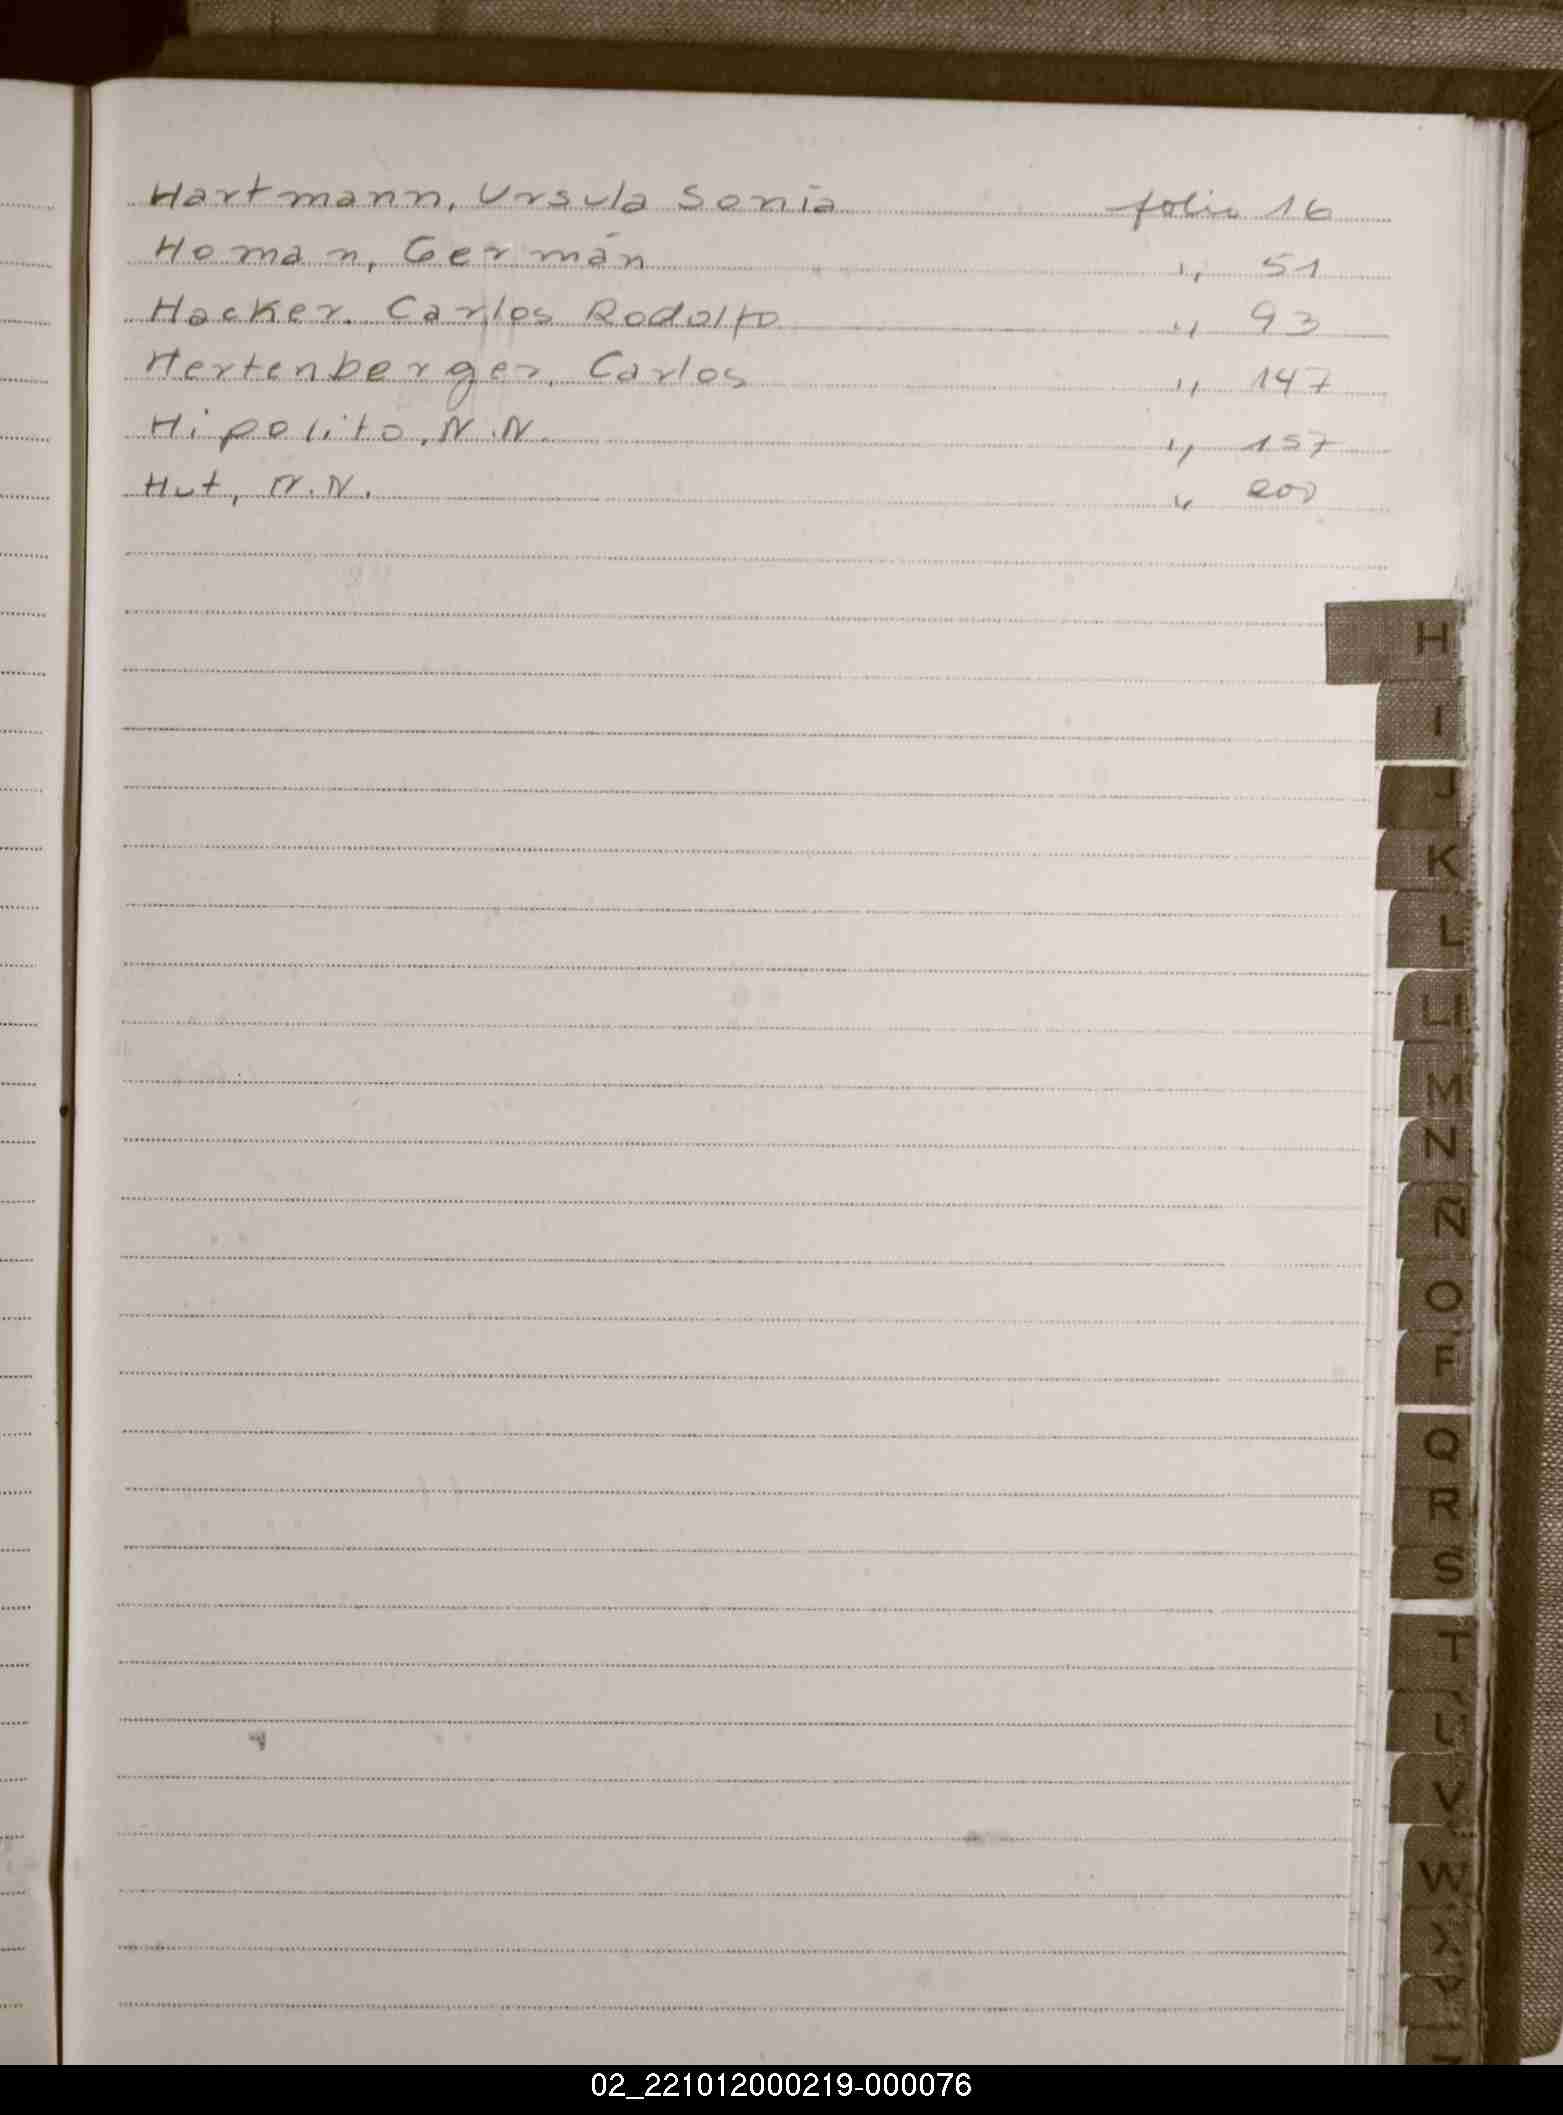 Hartmann, Ursula Sonia folio 16
Homan, Germán " 51
Hacker. Carlos Rodolfo " 93
Hertenberger, Carlos " 147
Hipolito, N.N. " 157
Hut, N.N. " 200
H
I
J
K
L
LL
M
N
Ñ
O
P
Q
R
S
T
U
V
W
X
Y
Z
02_221012000219-000076